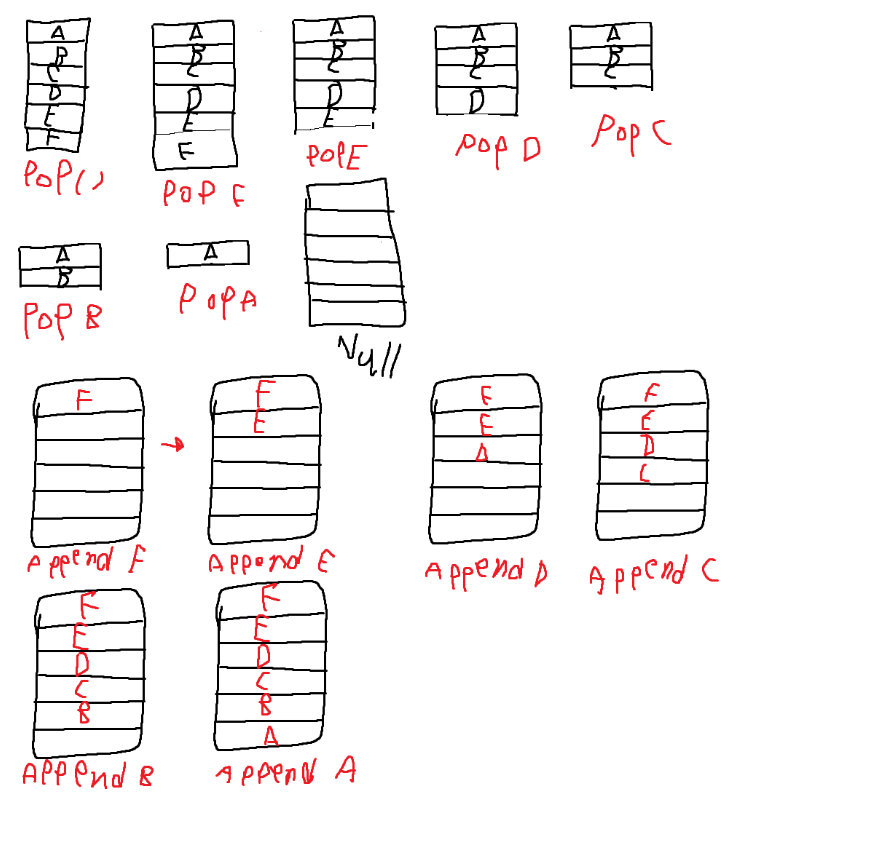 A
B
C
D
E
F
POP()
A
B
C
D
E
F
POP F
A
B
C
D
E
POP E
A
B
C
D
POP D
A
B
C
POP C
A
B
POP B
A
POP A
Null
F
Append F
F
E
Append E
F
E
D
Append D
F
E
D
C
Append C
F
E
D
C
B
Append B
F
E
D
C
B
A
Append A